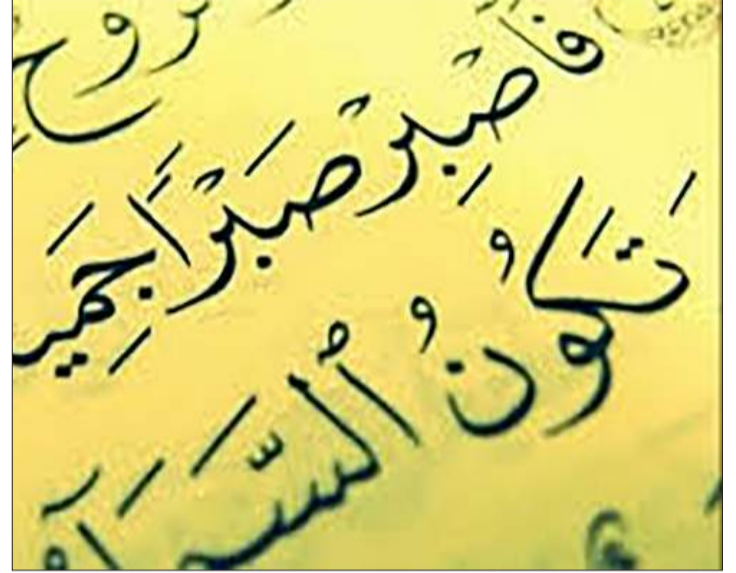 فَٱصْبِرْ صَبْرًا جَمِي
تَكُونُ ٱلسَّمَآ